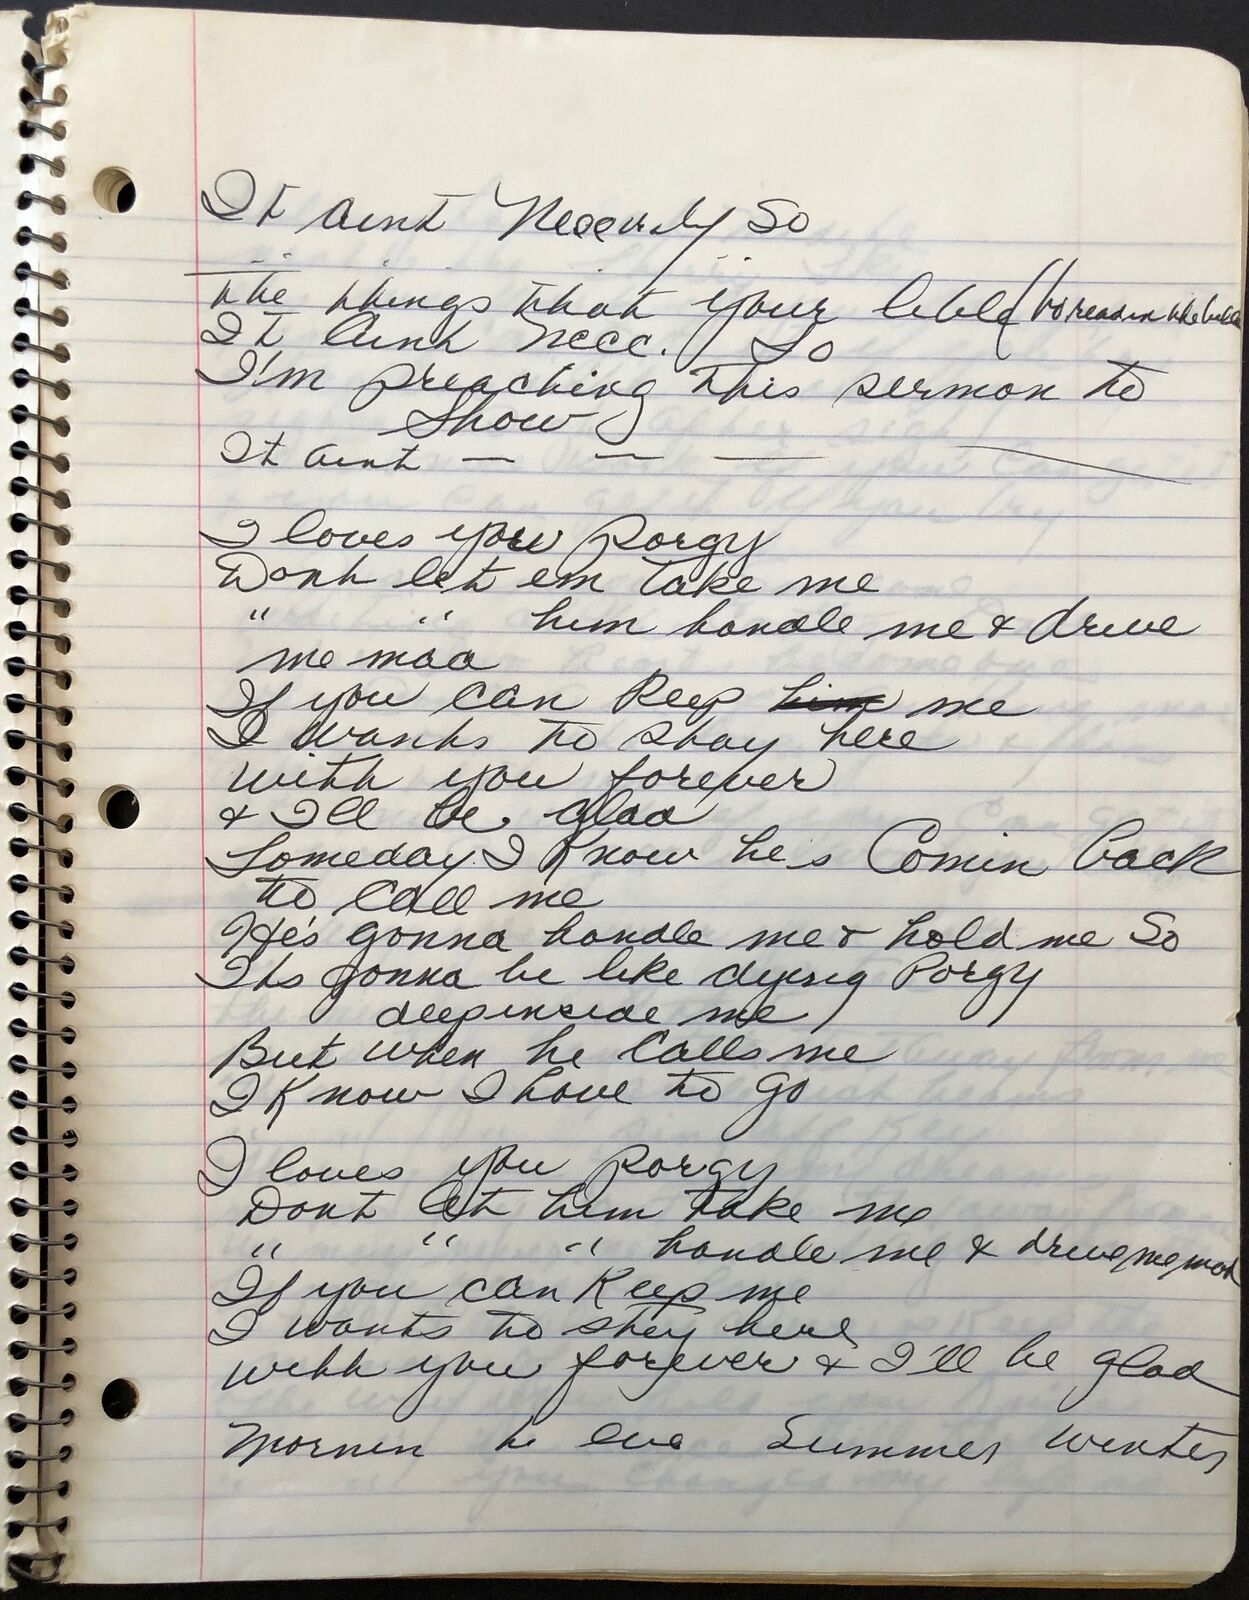 It aint Necc So
The things that your lible (to read in the bible
It aint necc. So
I'm preaching this sermon to
Show
It aint — — —
I loves you Porgy
Dont let em take me
" " him handle me & drive
me mad
If you can keep him me
I wants to stay here
with you forever
& I'll be glad
Someday I know he's Comin back
to call me
He's gonna handle me & hold me So
Its gonna be like dying Porgy
deep inside me
But when he calls me
I know I have to go
I loves you Porgy
Dont let him take me
" " " handle me & drive me mad
If you can keep me
I wants to stay here
with you forever & I'll be glad
Mornin eve Summer winter